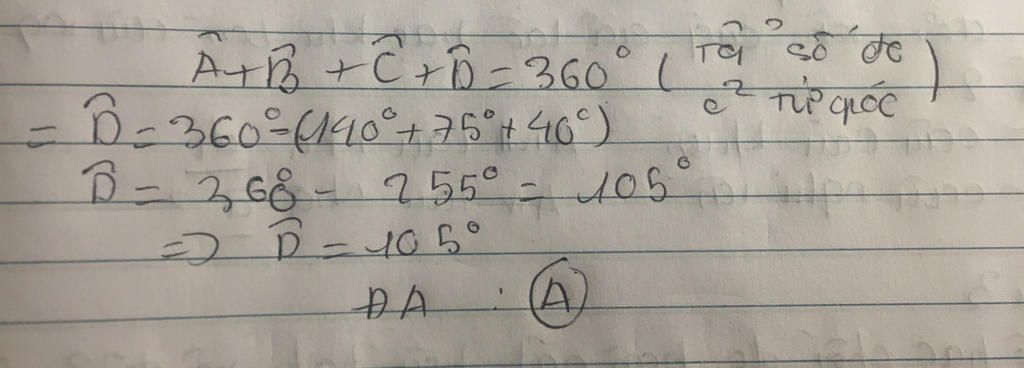 Â + B̂ + Ĉ + D̂ = 360° ( số đo
tứ giác )
= D̂ = 360° - (140° + 75° + 40°)
D̂ = 360° - 255° = 105°
=> D̂ = 105°
ĐA : A